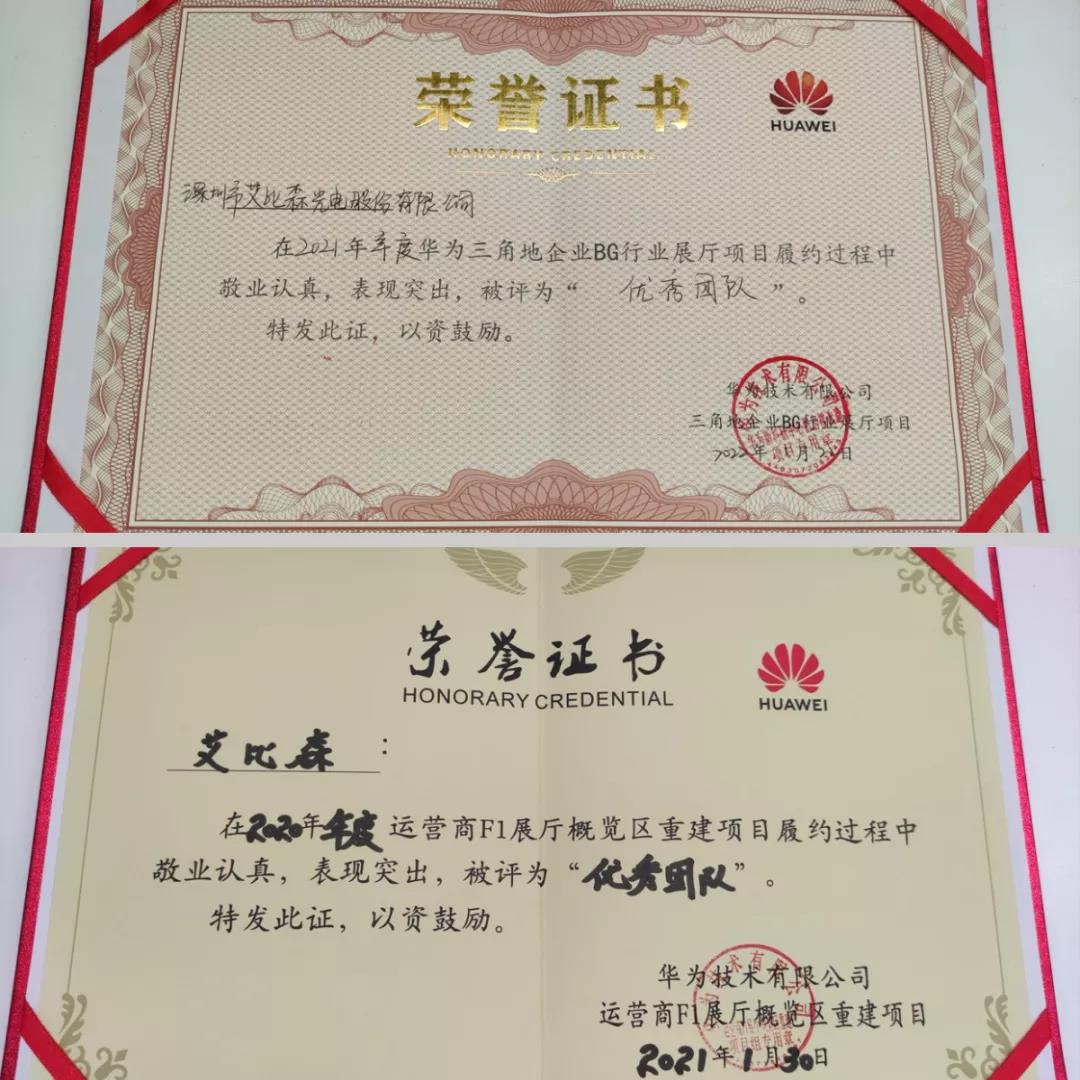 荣誉证书
HUAWEI
HONORARY CREDENTIAL
深圳市艾比森光电股份有限公司
在2021年年度华为三角地企业BG行业展厅项目履约过程中
敬业认真，表现突出，被评为“优秀团队”。
特发此证，以资鼓励。
华为技术有限公司
三角地企业BG行业展厅项目
2022年 月 日
荣誉证书
HONORARY CREDENTIAL
HUAWEI
艾比森：
在2020年年度运营商F1展厅概览区重建项目履约过程中
敬业认真，表现突出，被评为“优秀团队”。
特发此证，以资鼓励。
华为技术有限公司
运营商F1展厅概览区重建项目
2021年1月30日